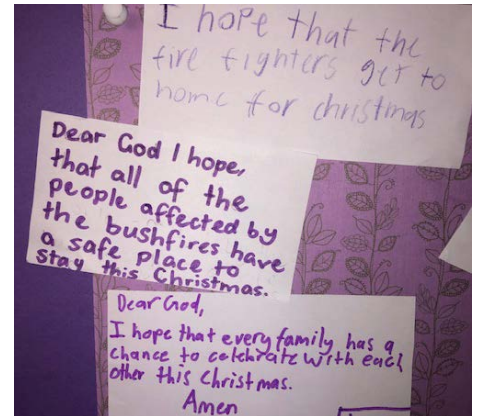 I hope that the
fire fighters get to
home for christmas
Dear God I hope,
that all of the
people affected by
the bushfires have
a safe place to
stay this Christmas.
Dear God,
I hope that every family has a
chance to celebrate with each
other this Christmas.
Amen